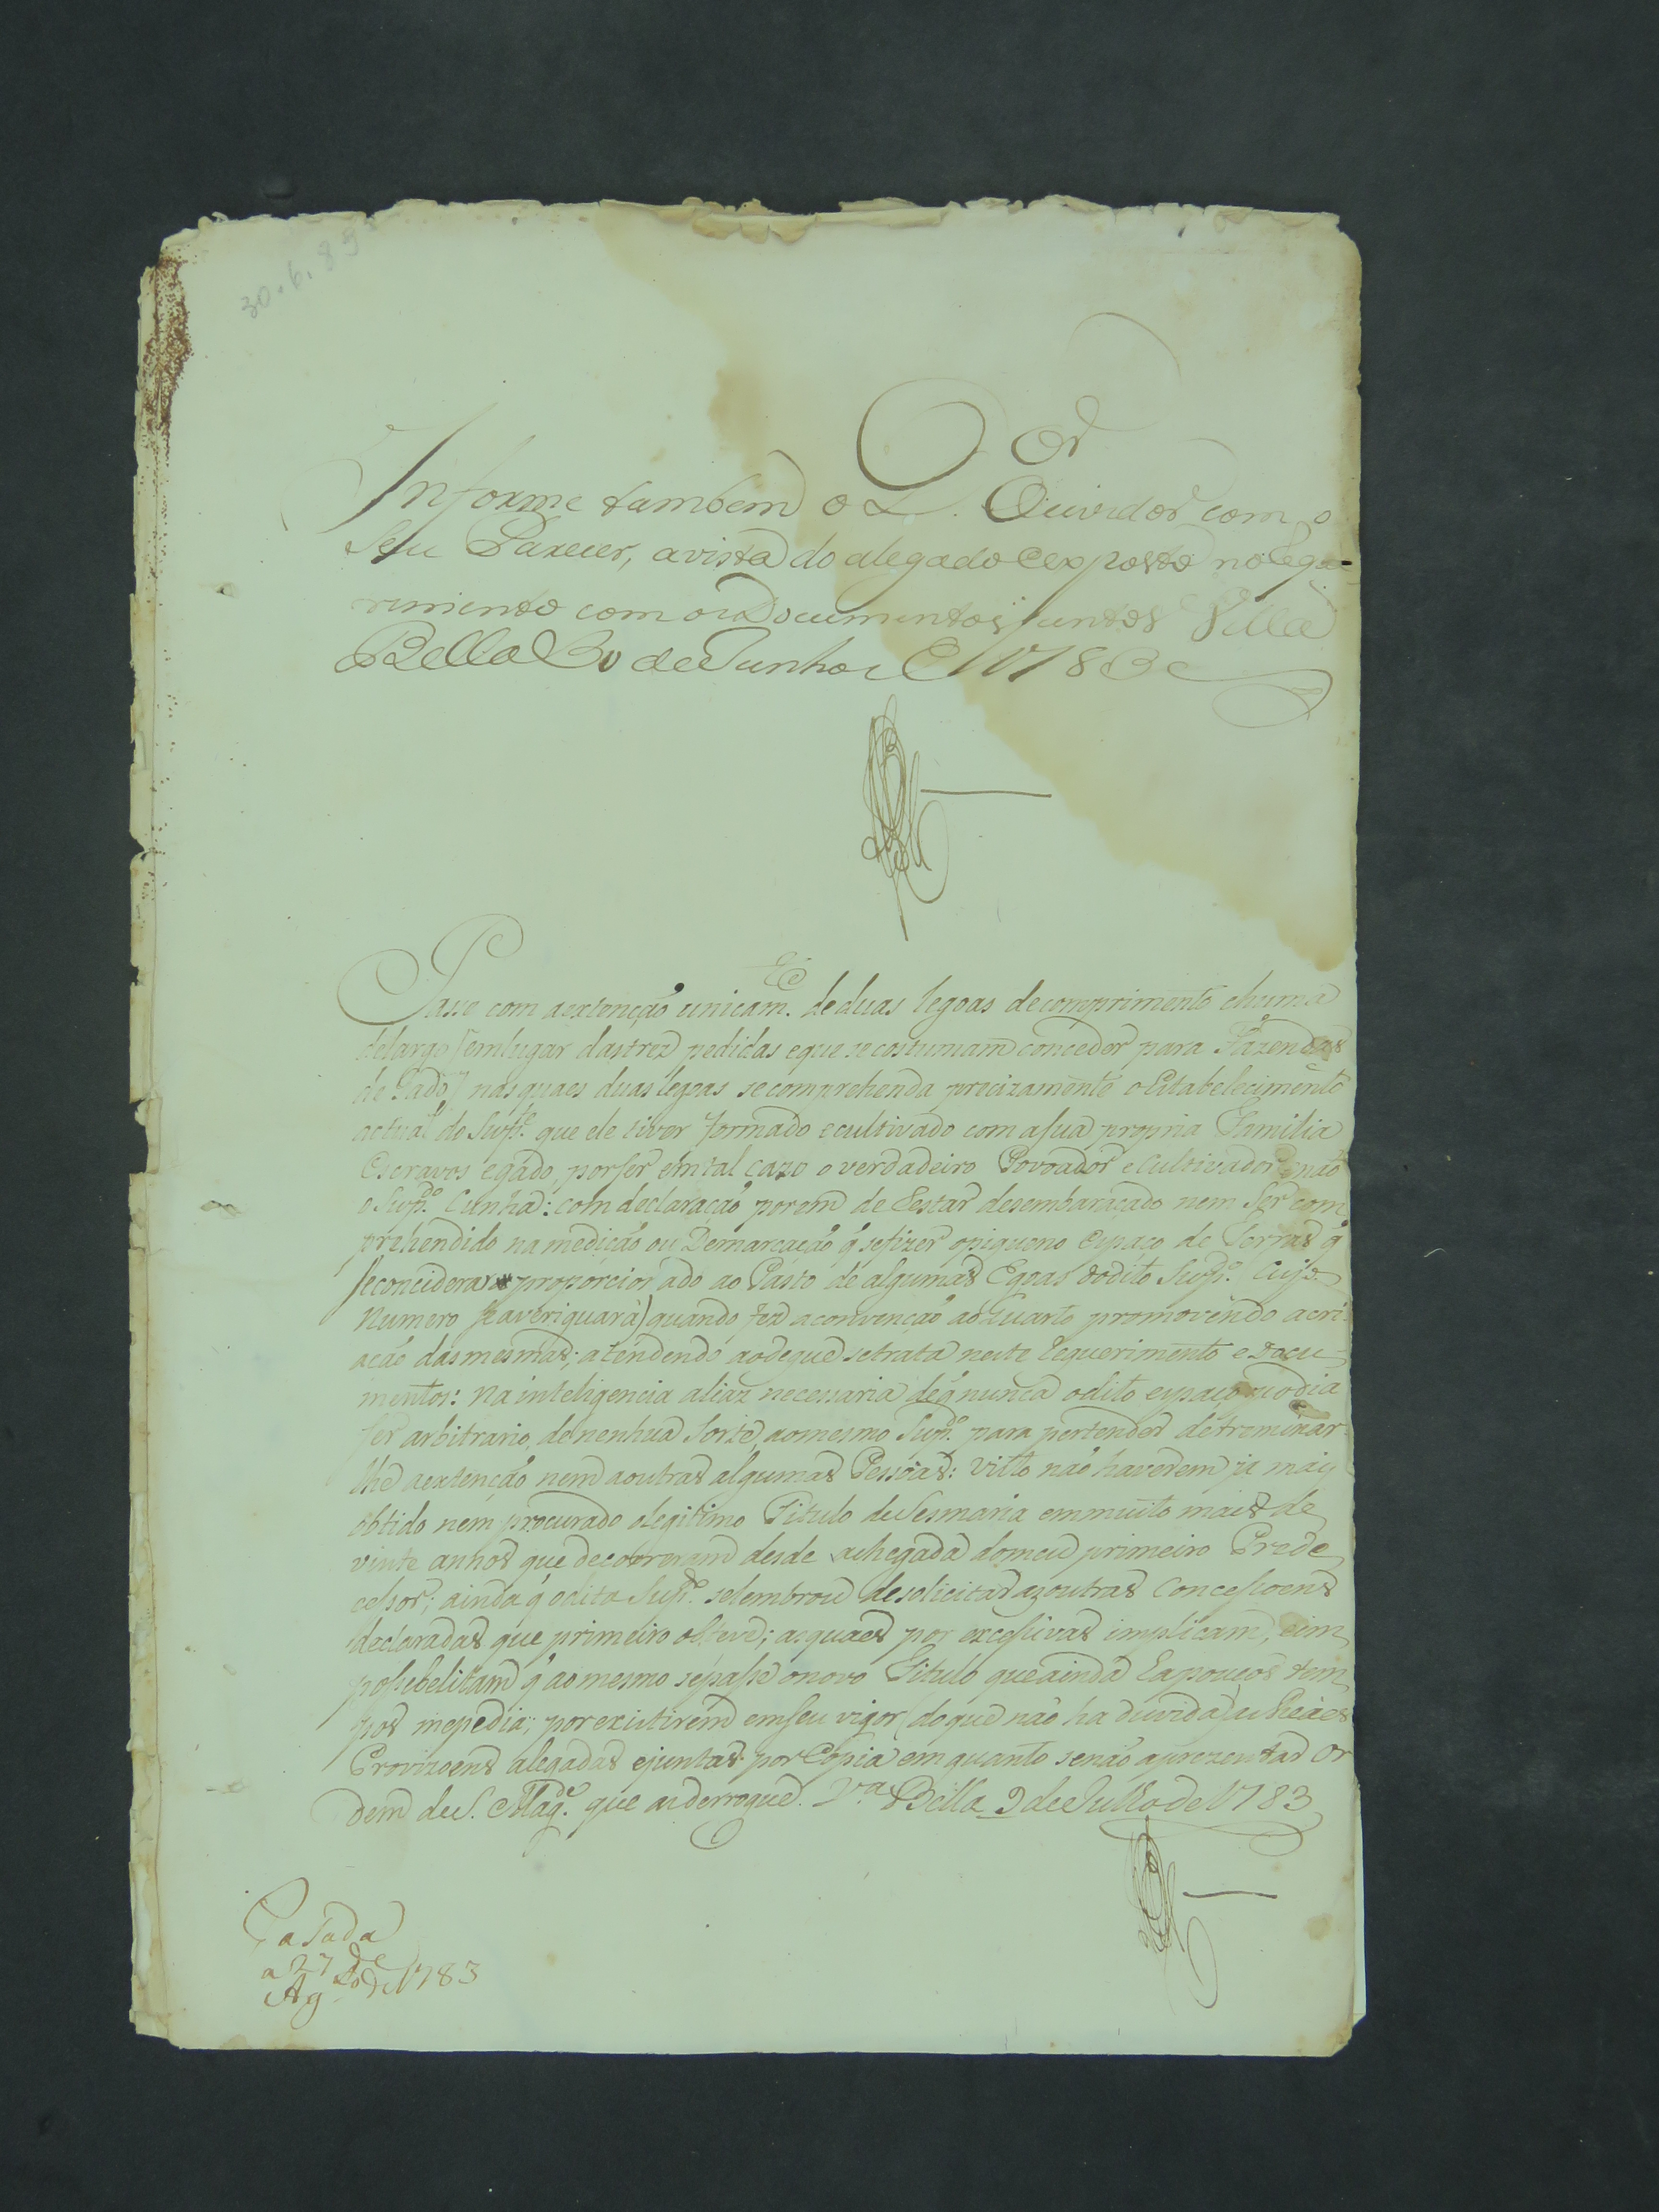 30.6.83
Informe tambem o D.or Ouvidor com o
Seu Parecer, avista do alegado e exposto no Reque-
rimento com os Documentos juntos Villa
Bella 30 de Junho de 1783
Passe com aextenção unicam.te de duas legoas decomprimento ehuma
delargo (emlugar dastrez pedidas eque se costumam conceder para Fazendas
de Gado) nasquaes duas legoas secomprehenda precizamente o Estabelecimento
actual do Sup.te que ele tiver formado ecultivado com asua propria Familia
Escravos egado, porser emtal cazo o verdadeiro Povoador e Cultivador enão
o Sup.do Cunha: com declaração porem de restar desembaraçado nem ser com
prehendido na medição ou Demarcação q̃ sefizer opiqueno Espaço de Terras q̃
seconciderar proporcionado ao Pasto de algumas Egoas dodito Sup.do Cujo
Numero (se averiguará) quando fez aconvenção ao Quarto promovendo acri-
ação dasmesmas; atendendo aodeque setrata neste Requerimento e Docu-
mentos: Na inteligencia aliaz necessaria deq̃ nunca odito espaço podia
ser arbitrario, denenhua sorte, aomesmo Sup.do para pertender detreminar-
lhe aextenção nem aoutras algumas Pessoas: Visto não haverem ja mais
obtido nem procurado olegitimo Titulo deSesmaria emmuito mais de
vinte anhos que decorreram desde achegada domeu primeiro Prede
cessor; ainda q̃ odito Sup.do selembrou desolicitar as outras Concessoens
declaradas que primeiro obteve; asquaes por excessivas implicam, eim
possebelitam q̃ aomesmo sepasse onovo Titulo queainda lapoucos tem
pos mepedia; porexistirem emseu vigor (doque não ha duvida) as Reaes
Provizoens alegadas ejuntas por Copia em quanto senão aprezentar Or
dem deS. Mag.de que as derrogue. V.a Bella 9 deJulho de 1783
Pasada
a 27 de
Ag.to de 1783